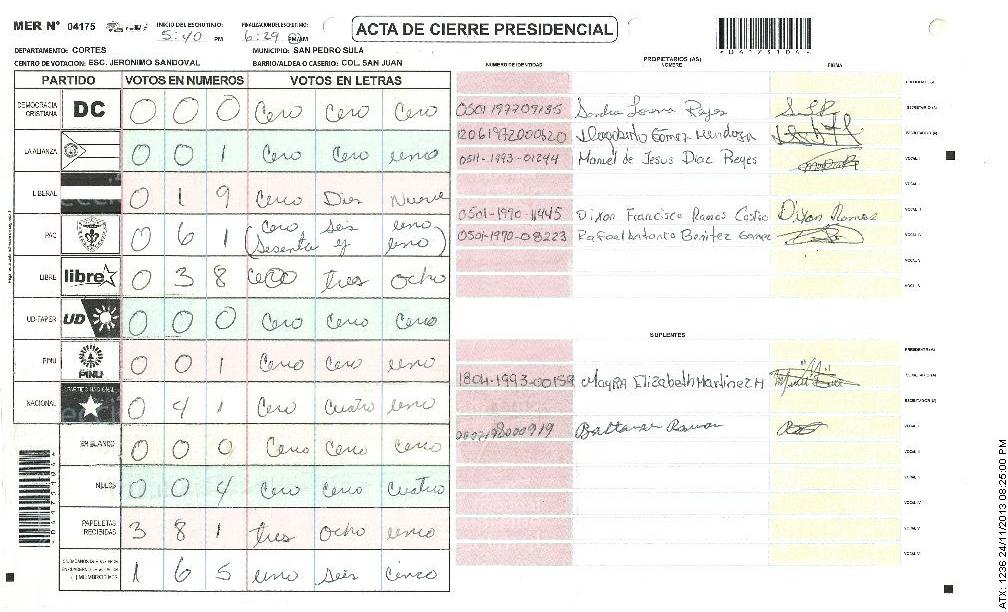 MER N° 04175 INICIO DEL ESCRUTINIO: 5:40 PM FINALIZACION DEL ESCRUTINIO: 6:29 PM/AM
ACTA DE CIERRE PRESIDENCIAL
DEPARTAMENTO: CORTES MUNICIPIO: SAN PEDRO SULA
CENTRO DE VOTACION: ESC. JERONIMO SANDOVAL BARRIO/ALDEA O CASERIO: COL. SAN JUAN
PARTIDO VOTOS EN NUMEROS VOTOS EN LETRAS
DEMOCRACIA CRISTIANA DC 0 0 0 Cero Cero Cero
LA ALIANZA 0 0 1 Cero Cero uno
LIBERAL 0 1 9 Cero Diez Nueve
PAC 0 6 1 (Cero seis uno
Sesenta y uno)
LIBRE libre 0 3 8 Cero tres ocho
UD-FAPER UD 0 0 0 Cero Cero Cero
PINU PINU 0 0 1 Cero Cero uno
NACIONAL 0 4 1 Cero Cuatro uno
EN BLANCO 0 0 0 Cero Cero Cero
NULOS 0 0 4 Cero Cero Cuatro
PAPELETAS RECIBIDAS 3 8 1 tres ocho uno
1 6 5 uno seis cinco
NUMERO DE IDENTIDAD PROPIETARIOS (AS) NOMBRE FIRMA
Sandra Lorena Reyes
12061972000620 Dagoberto Gómez Mendoza
0511-1993-01244 Manuel de Jesus Diaz Reyes
0501-1970-11445 Dixon Francisco Ramos Castro Dixon Ramos
0501-1970-08223 Rafael Antonio Benitez Gomez
SUPLENTES
1804-1993-00159 Mayra Elizabeth Martinez M
Baltazar Ramon
ATX: 1236 24/11/2013 08:25:00 PM